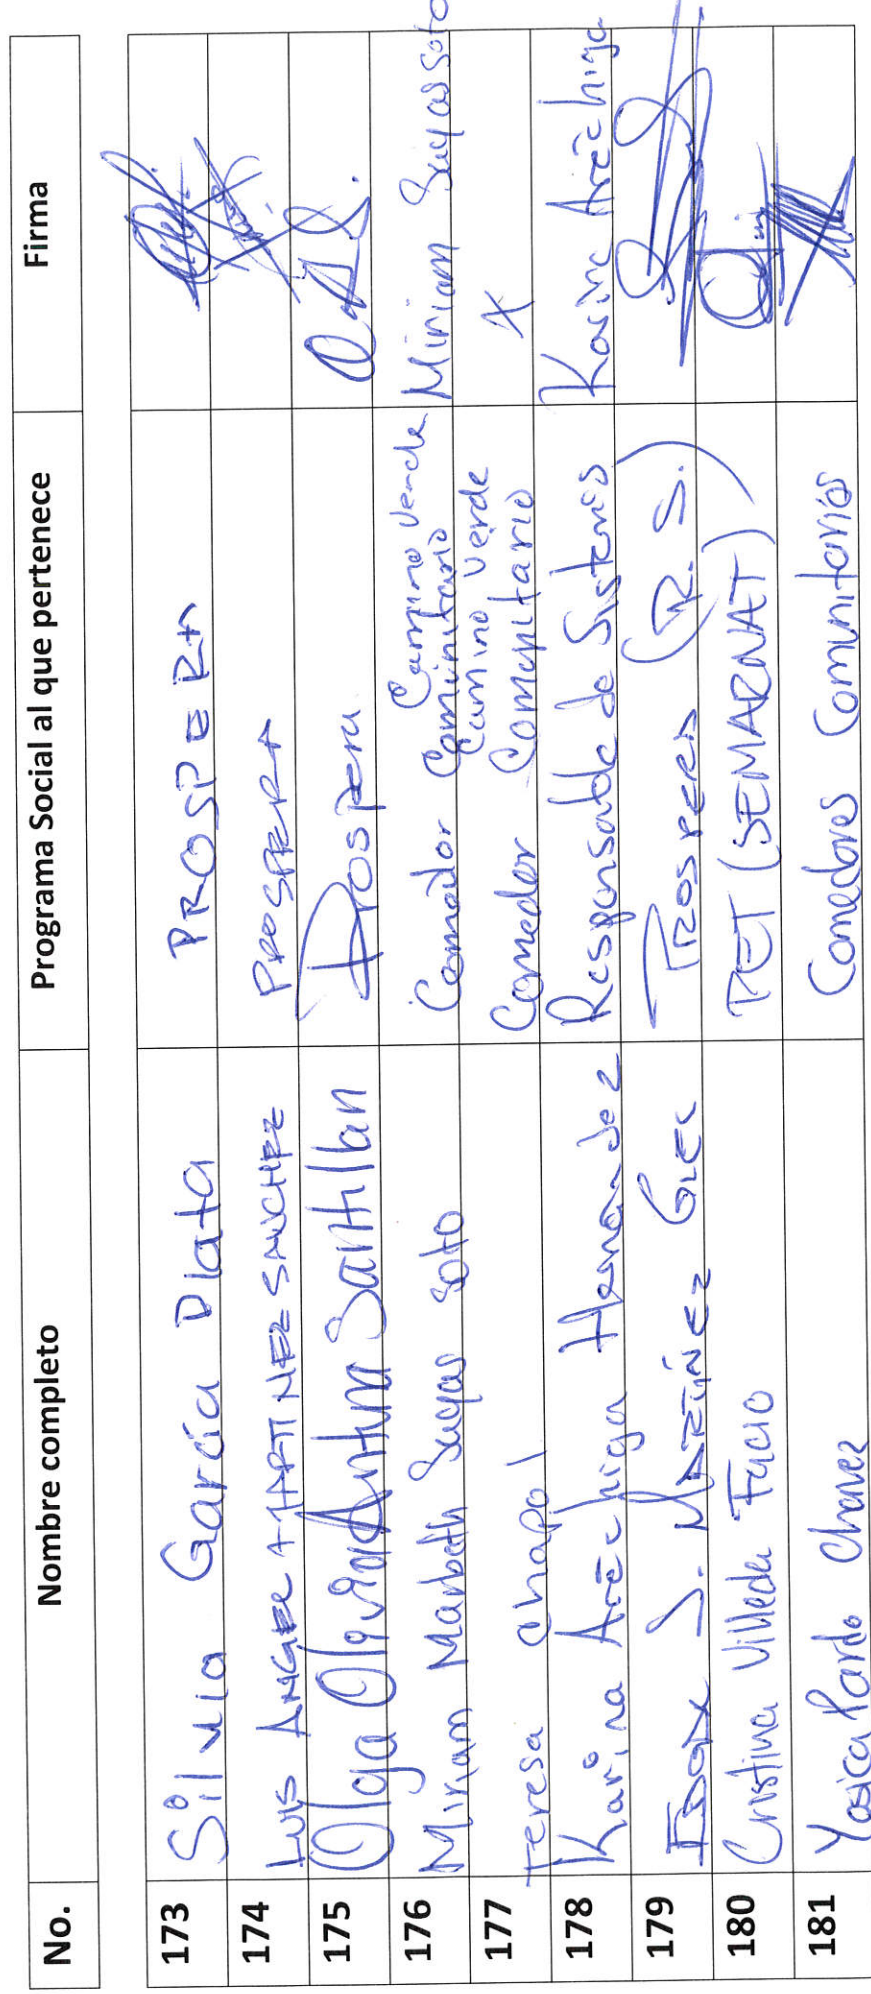 No. Nombre completo Programa Social al que pertenece Firma
173 Silvia García Plata PROSPERA
174 LUIS ANGEL MARTINEZ SANCHEZ PROSPERA
175 Olga Olivia Santillan Prospera
176 Miriam Marbeth Sayas Soto Comedor Comunitario Camino Verde Miriam Sayas Soto
177 Teresa Chapol Comedor Comunitario Camino Verde X
178 Karina Aréchiga Hernandez Responsable de Sistemas Karina Aréchiga
179 S. MARTÍNEZ PROSPERA (R. S.)
180 Cristina Villeda Facio PET (SEMARNAT)
181 Yasica Pardo Chavez Comedores Comunitarios